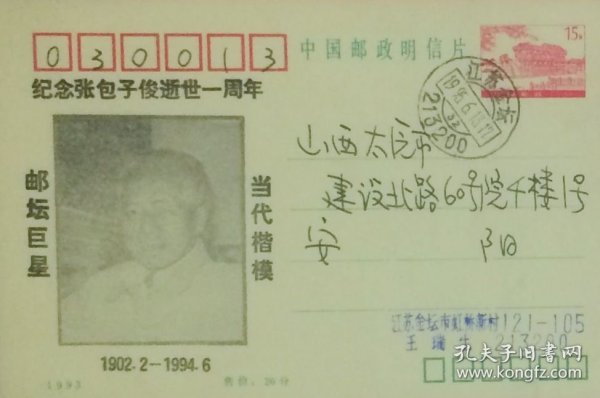 030013
中国邮政明信片
15分
纪念张包子俊逝世一周年
邮坛巨星
当代楷模
1902.2—1994.6
江苏金坛
1995.6.18.17
213200
山西太原市
建设北路60号院4楼1号
安 阳
江苏金坛市虹桥新村121-105
王瑞生 213200
1993
售价:20分
孔夫子旧书网
www.kongfz.com